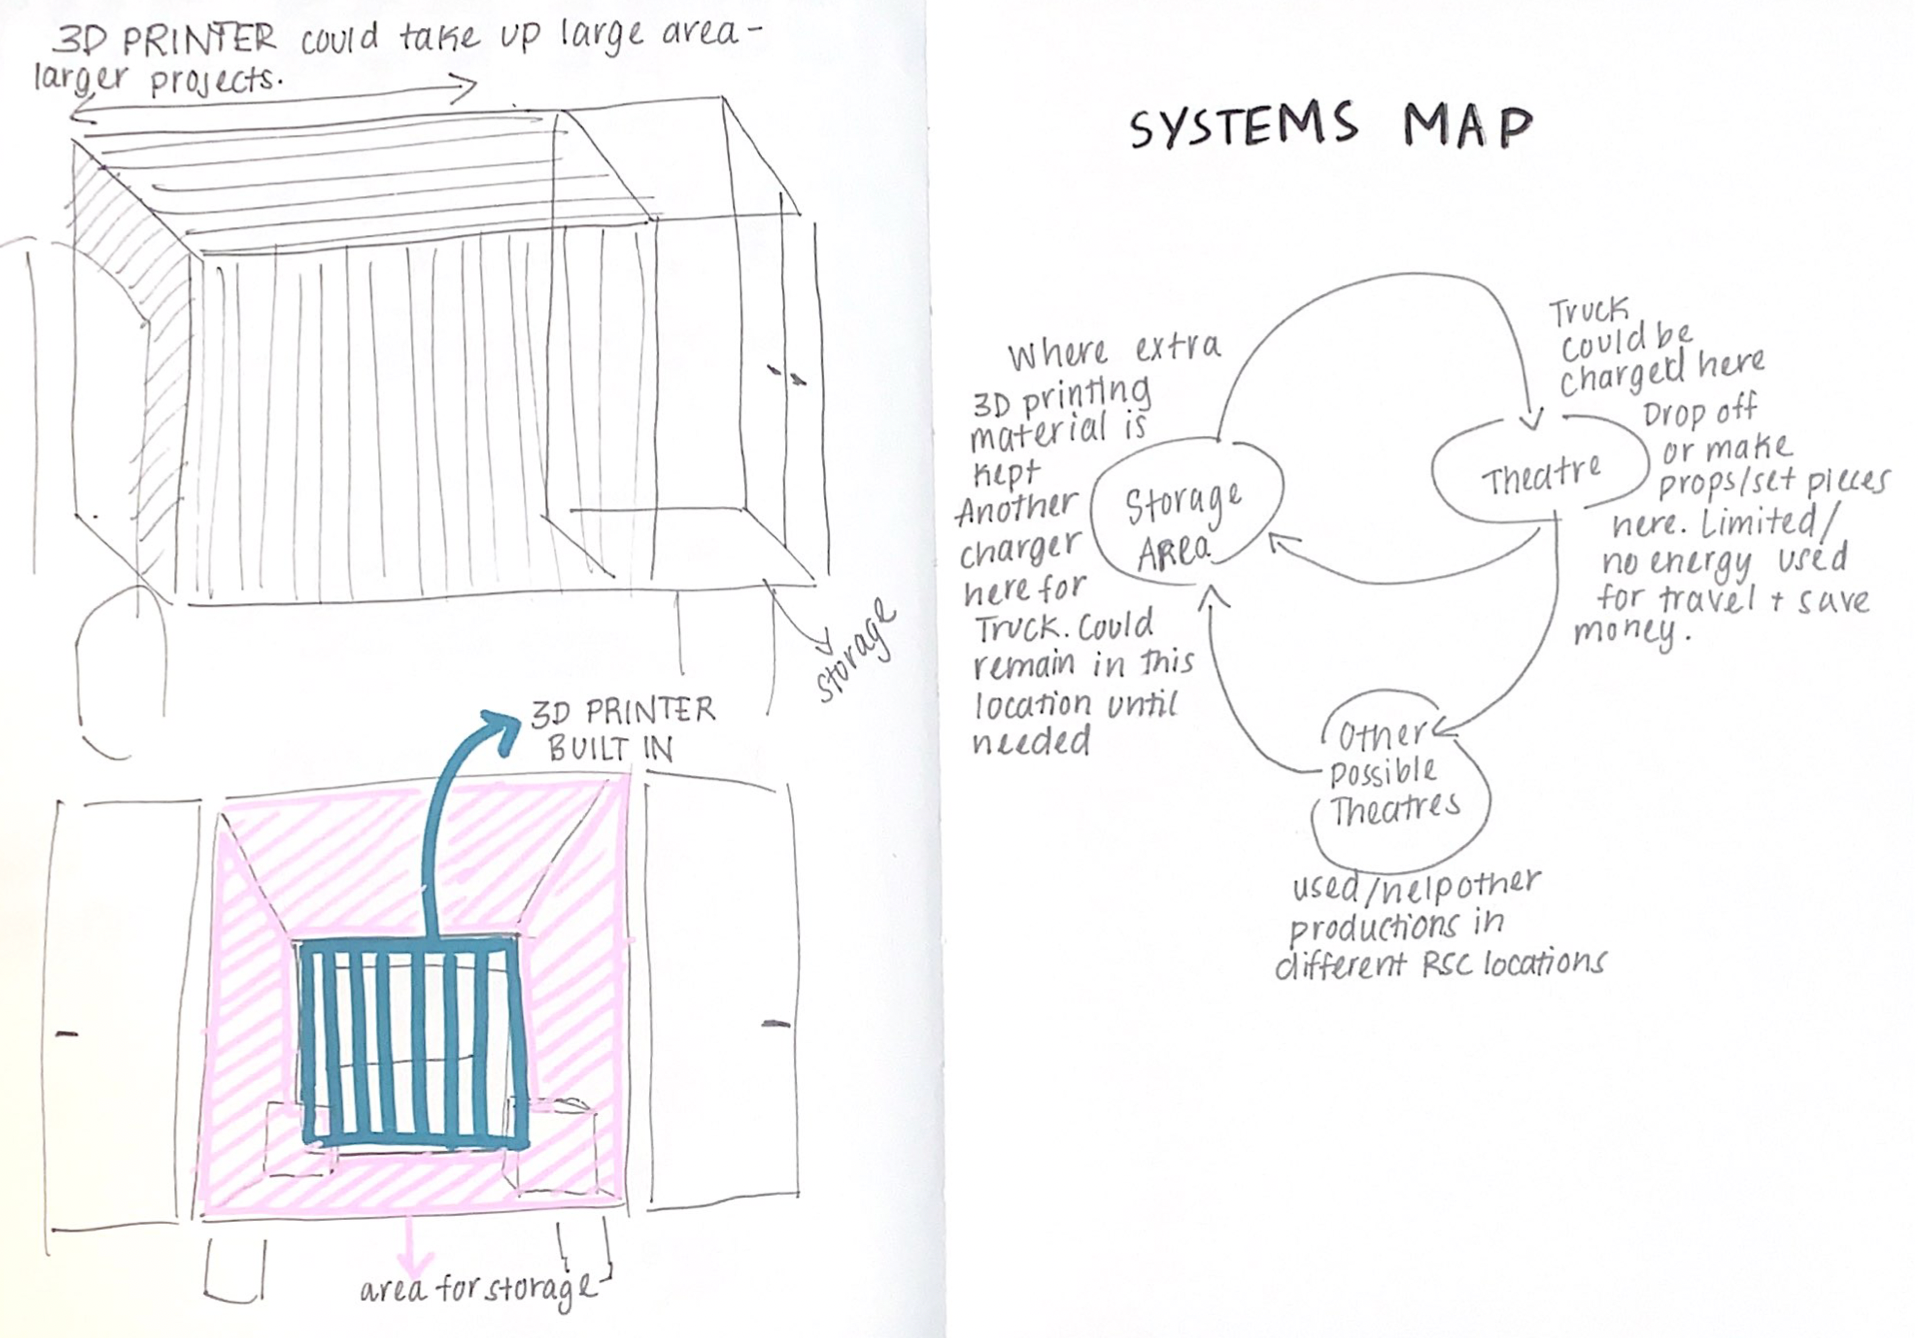 3D PRINTER could take up large area-
larger projects.
storage
3D PRINTER
BUILT IN
area for storage
SYSTEMS MAP
Where extra
3D printing
material is
kept
Another
charger
here for
Truck. Could
remain in this
location until
needed
Storage
Area
Truck
could be
charged here
Drop off
or make
props/set pieces
here. Limited/
no energy used
for travel + save
money.
Theatre
Other
possible
Theatres
used/help other
productions in
different RSC locations